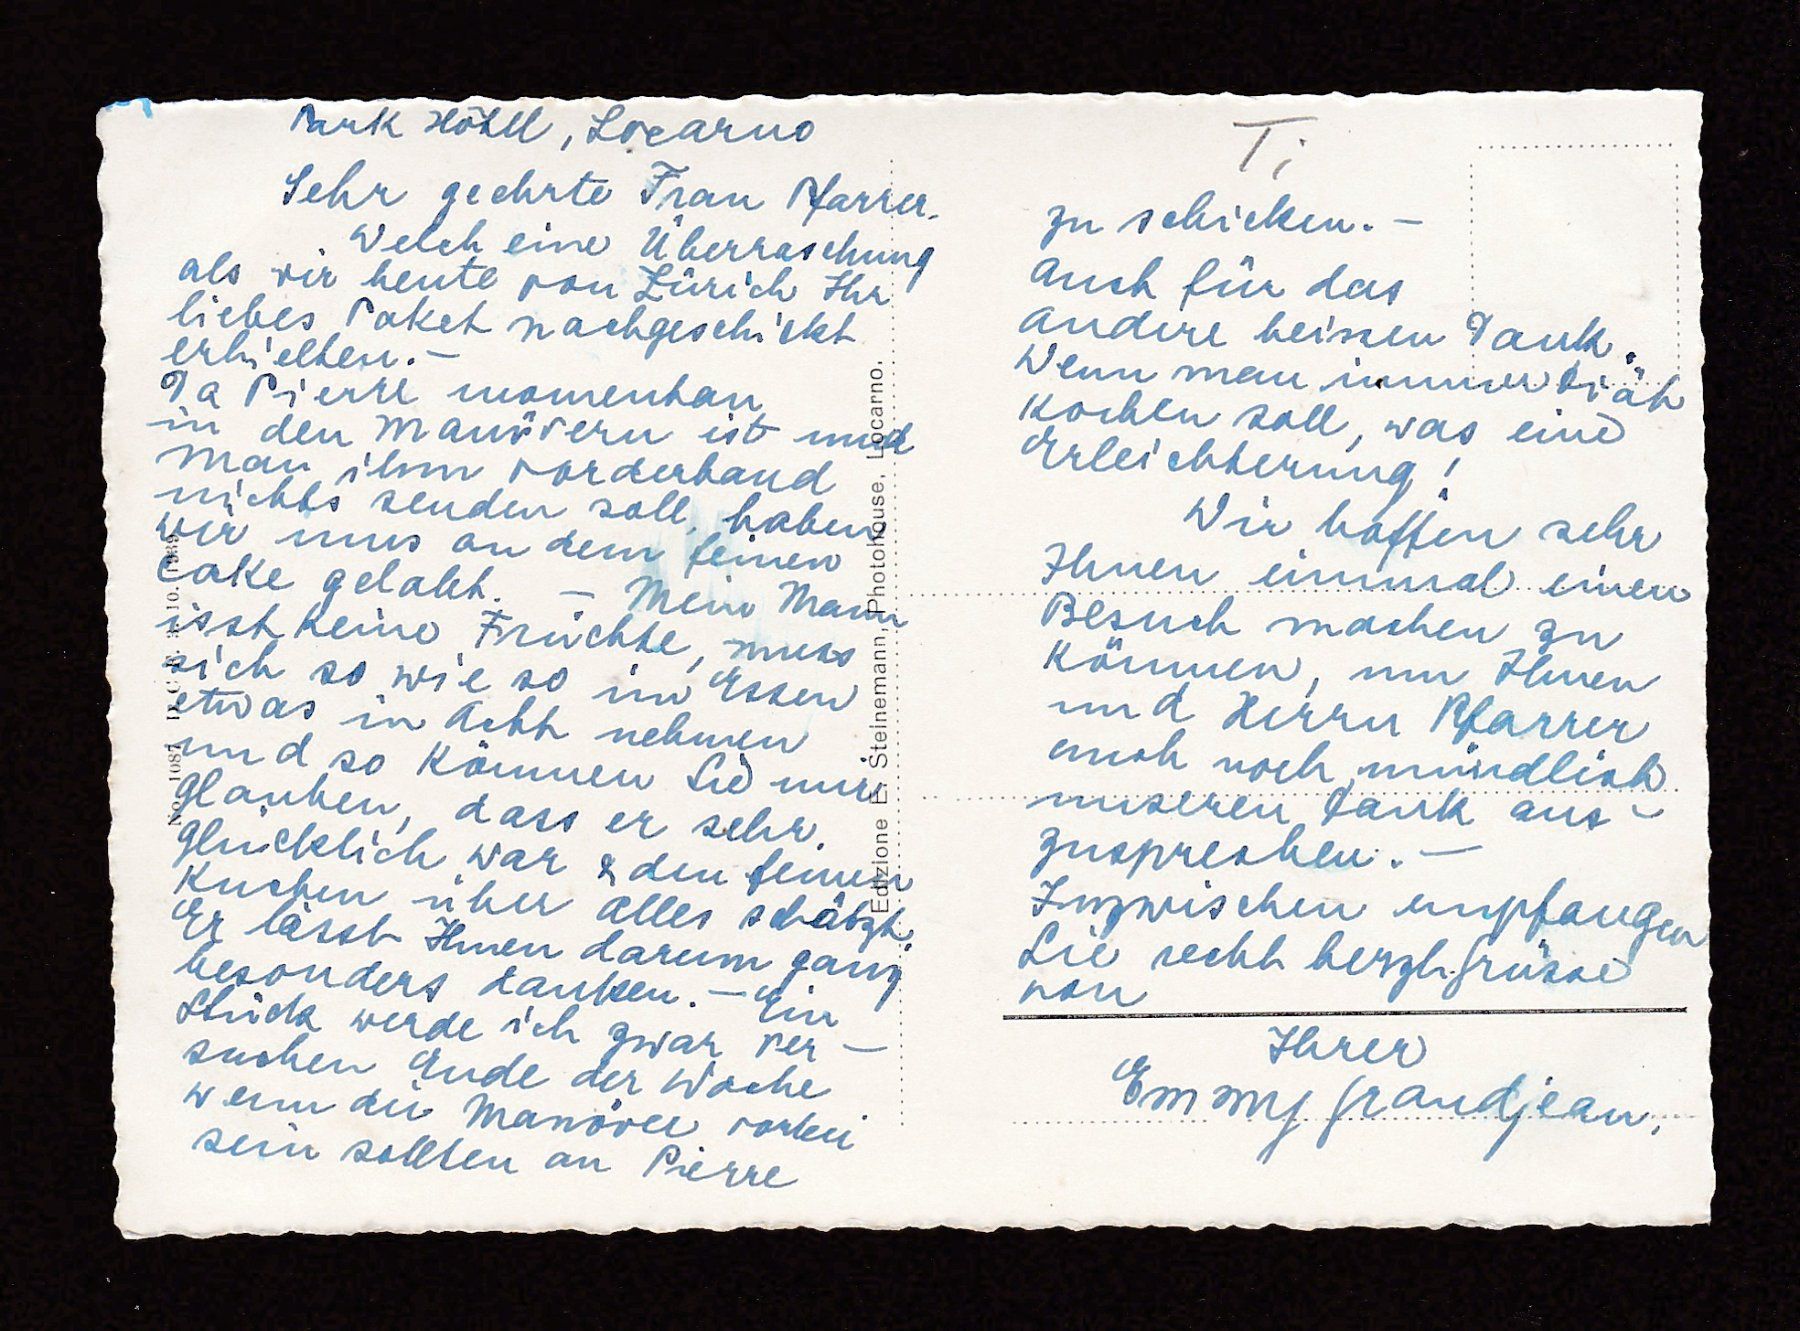 Park Hôtel, Locarno
Sehr geehrte Frau Pfarrer.
Welch eine Überraschung
als wir heute von Zürich Ihr
liebes Paket nachgeschickt
erhielten. —
Da Pierre momentan
in den Manövern ist und
man ihm vorderhand
nichts senden soll, haben
wir uns an dem feinen
Cake gelabt. — Mein Mann
isst keine Früchte, muss
sich so wie so im Essen
etwas in Acht nehmen
und so können Sie mir
glauben, dass er sehr
glücklich war & den feinen
Kuchen über alles schätzt.
Er lässt Ihnen darum ganz
besonders danken. — Ein
Stück werde ich zwar ver-
suchen Ende der Woche
wenn die Manöver vorbei
sein sollten an Pierre
Edizione E. Steinemann, Photohouse, Locarno.
Ti
zu schicken. —
Auch für das
andere heissen Dank.
Wenn man immer Diät
kochen soll, was eine
Erleichterung!
Wir hoffen sehr
Ihnen einmal einen
Besuch machen zu
können, um Ihnen
und Herrn Pfarrer
auch noch mündlich
unseren Dank aus-
zusprechen. —
Inzwischen empfangen
Sie recht herzl. Grüsse
von
Ihrer
Emmy Grandjean.